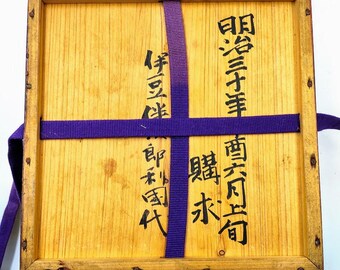 明治三十年酉六月上旬
購求
伊豆伴郎利国代